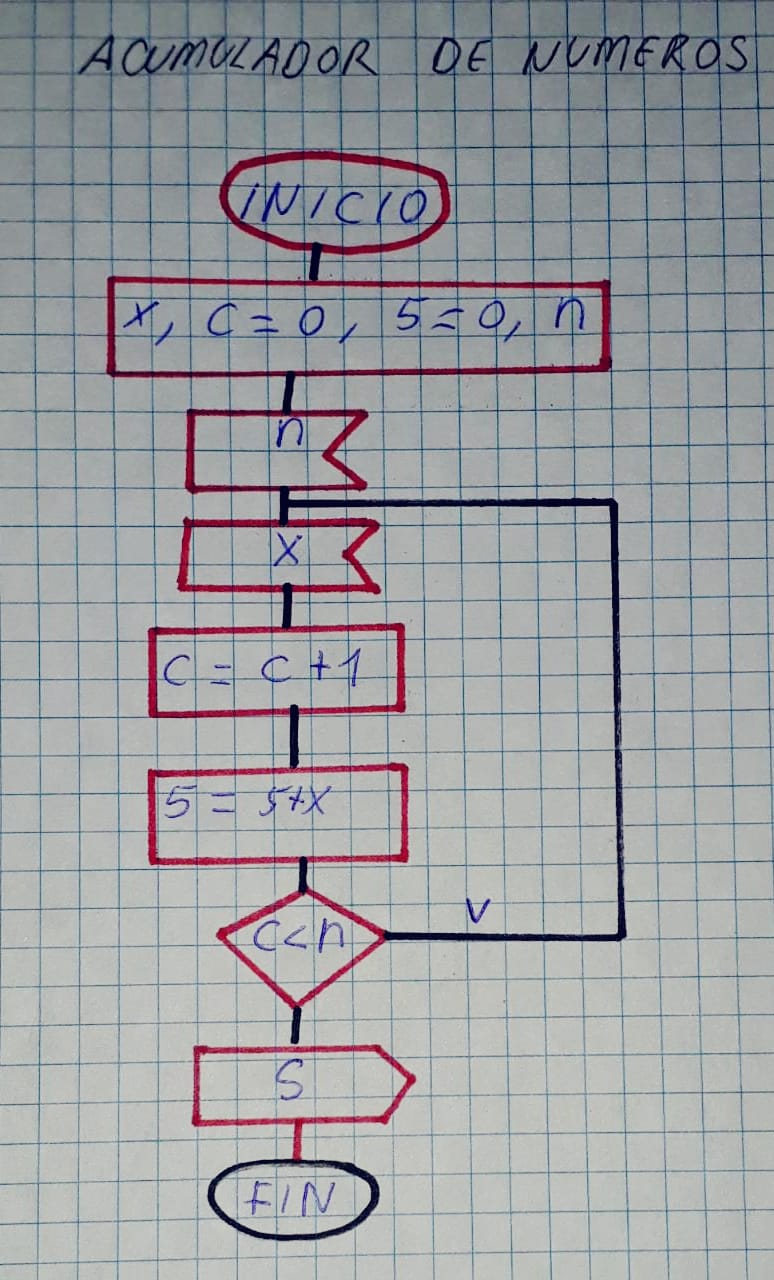 ACUMULADOR DE NUMEROS
INICIO
x, C = 0, S = 0, n
n
X
C = C + 1
S = S+X
C < n
V
S
FIN